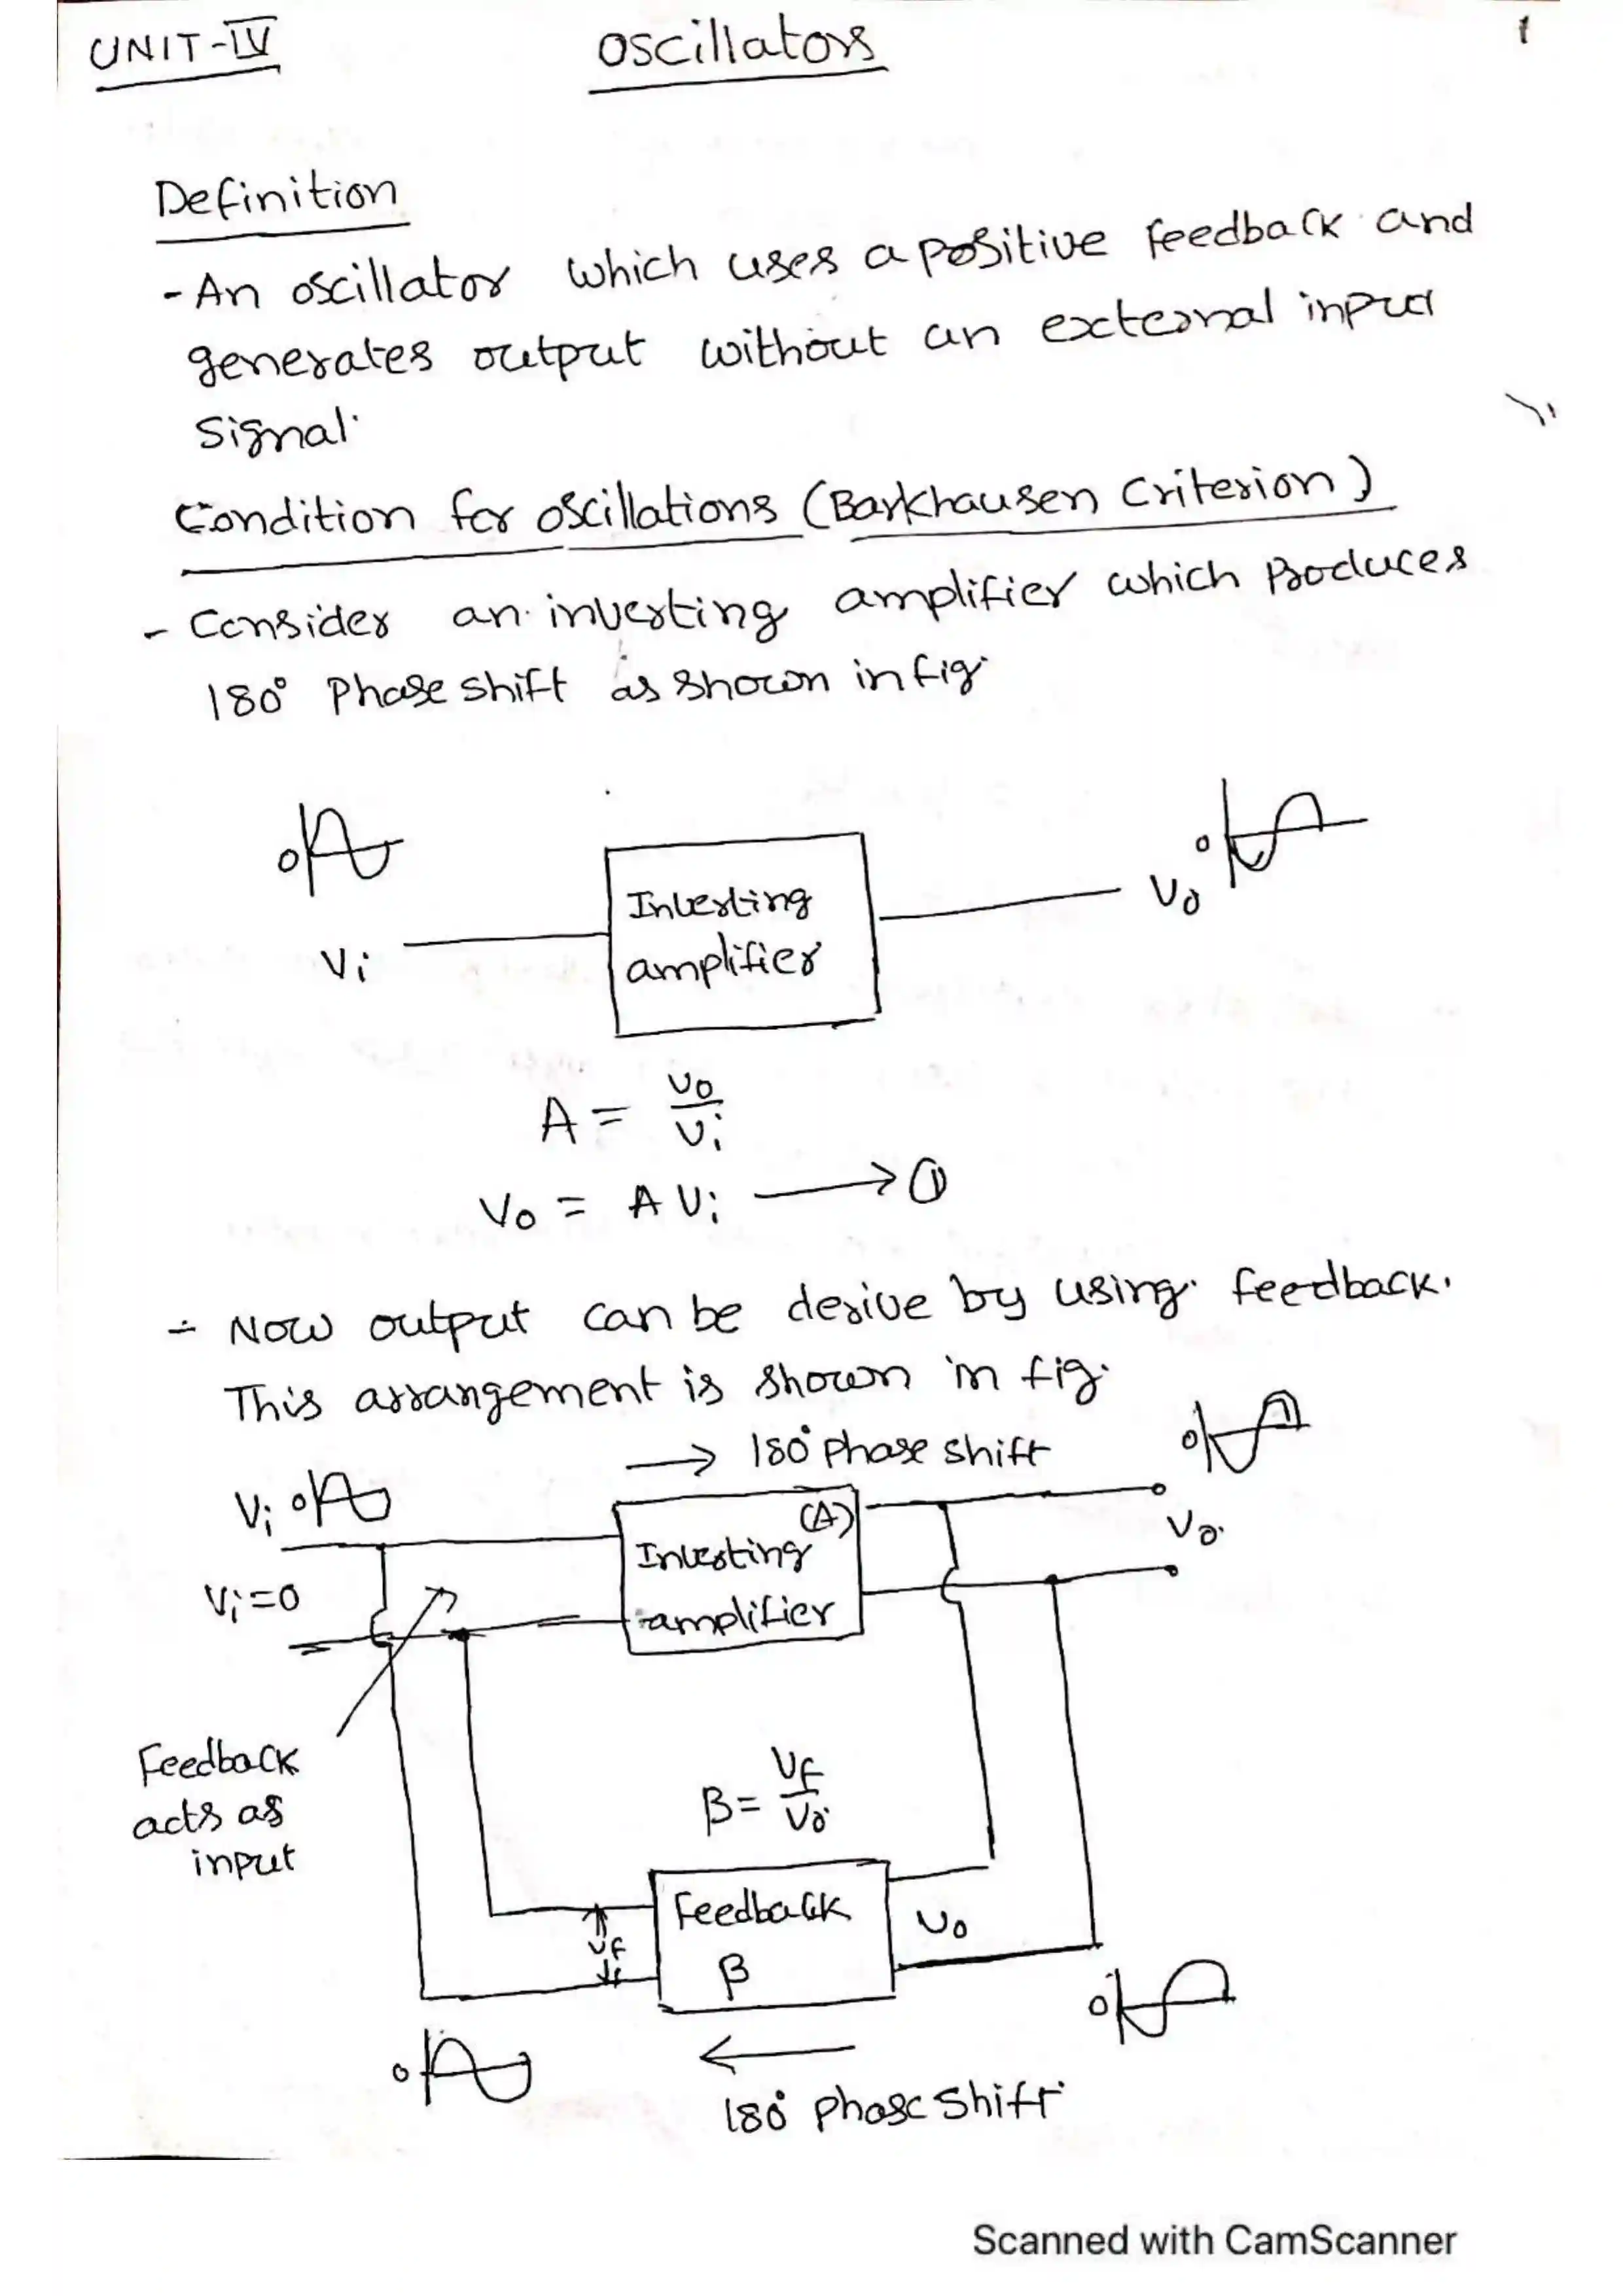 UNIT-IV
Oscillators
1
Definition
- An oscillator which uses a positive feedback and
generates output without an external input
signal.
Condition for oscillations (Barkhausen Criterion)
- Consider an inverting amplifier which produces
180° Phase shift as shown in fig.
0
0
Inverting
amplifier
Vi
Vo
A = Vo/Vi
Vo = A Vi ⟶ ①
- Now output can be derive by using feedback.
This arrangement is shown in fig.
→ 180° phase shift
0
Vi 0
(A)
Inverting
amplifier
Vo
Vi=0
Feedback
acts as
input
β = Vf/Vo
Feedback
β
Vf
Vo
0
0
←
180° phase shift
Scanned with CamScanner